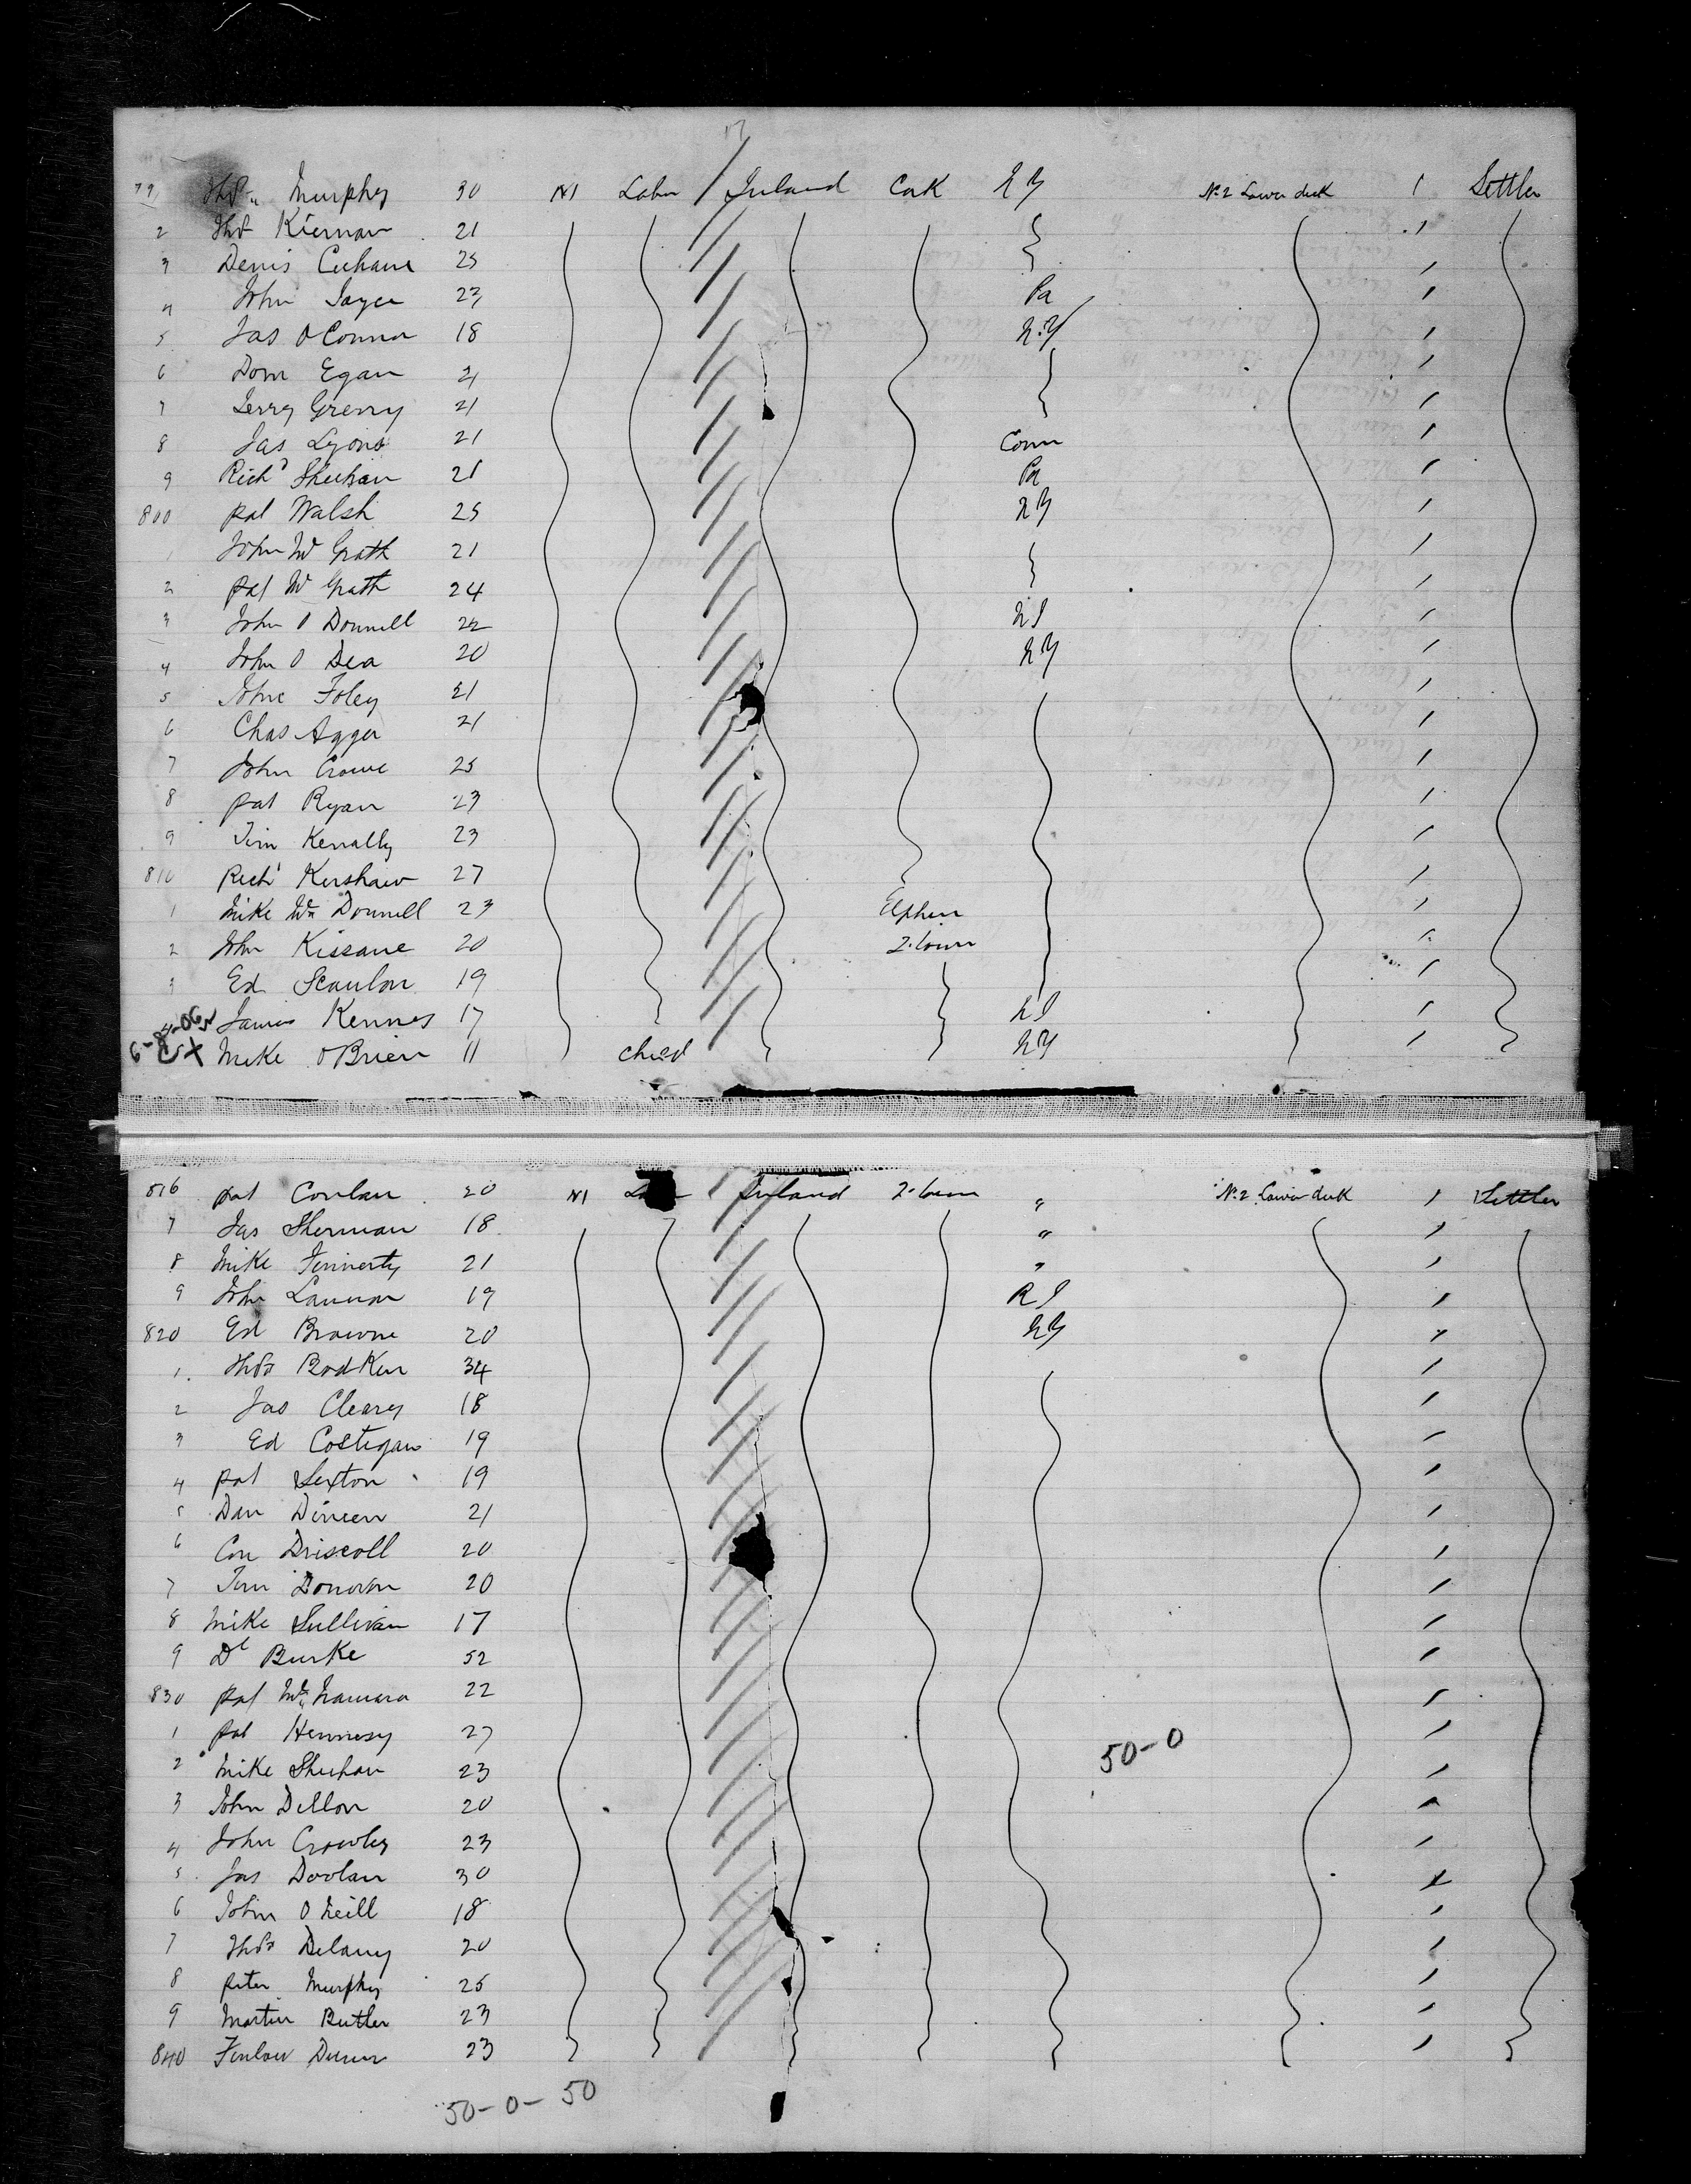 791 Thos Murphy 30 M Labr Ireland Cork N Y No 2 Lower deck 1 Settler
2 Thos Kiernan 21
3 Denis Cuhane 25
4 John 23 Pa
5 Jas O Connor 18 N.Y
6 Dom Egan 21
7 Jerry 21
8 Jas Lyons 21 Conn
9 Richd Sheehan 21 Pa
800 Pat Walsh 25 N Y
1 John Mc Grath 21
2 Pat Mc Grath 24
3 John O Donnell 22
4 John O Dea 20 N Y
5 John Foley 21
6 Chas Agger 21
7 John Crowe 25
8 Pat Ryan 23
9 Tim Kenally 23
810 Richd Kershaw 27
1 Mike Mc Donnell 23 Elphin
2 John Kissane 20 Q.town
3 Ed Scanlon 19
James 17
Mike O Brien 11 child N Y
816 Pat Conlan 20 M Ireland Q.town " No 2 Lower deck 1 Settler
7 Jas Sherman 18 "
8 Mike Finnerty 21 "
9 John Lannon 19 R I
820 Ed Browne 20 N Y
1 Thos Bodkin 34
2 Jas Cleary 18
3 Ed Costigan 19
4 Pat Sexton 19
5 Dan Dineen 21
6 Con Driscoll 20
7 Tim Donovan 20
8 Mike Sullivan 17
9 Dl Burke 52
830 Pat Mc Namara 22
1 Pat Hennesy 27
50-0
2 Mike Sheehan 23
3 John Dillon 20
4 John Crowley 23
5 Jas Doolan 30
6 John O Neill 18
7 Thos Delany 20
8 Peter Murphy 25
9 Martin Butler 23
840 23
50-0-50